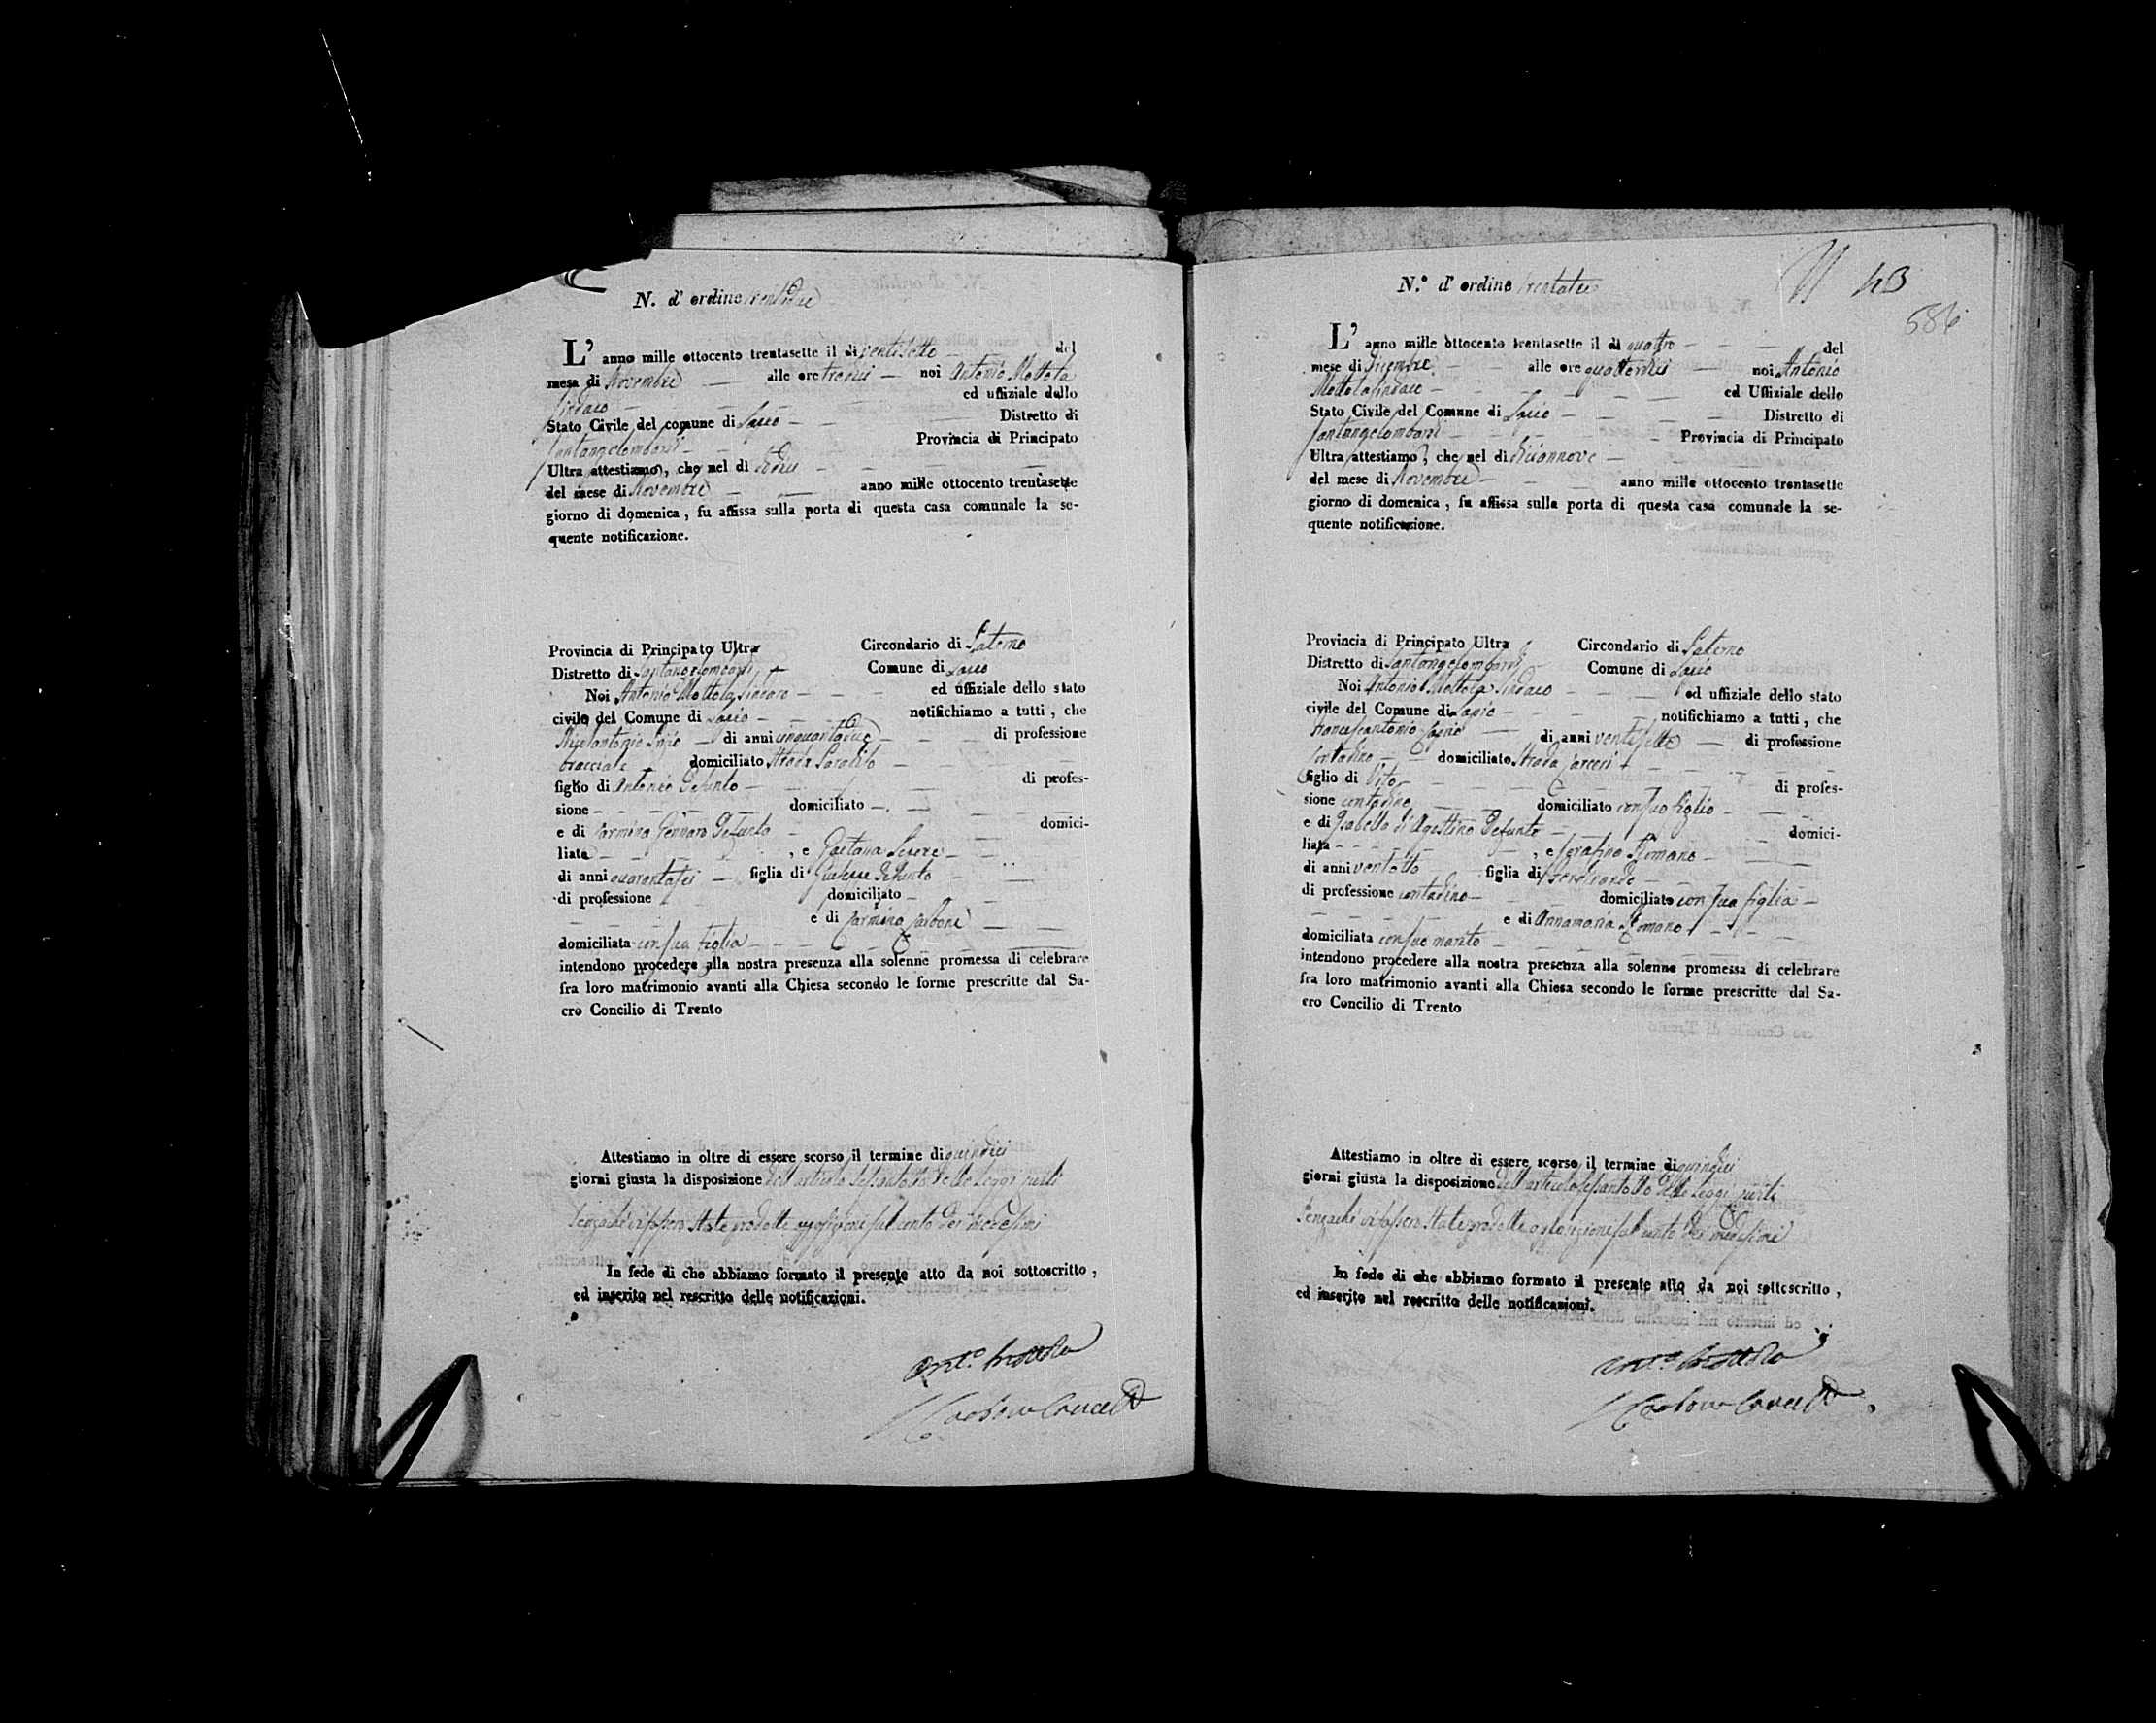 N. d' ordine trentadue
L' anno mille ottocento trentasette il di ventisette del
mese di Novembre alle ore tredici noi Antonio Mottola
Sindaco ed uffiziale dello
Stato Civile del comune di Lapio Distretto di
Santangelombardi Provincia di Principato
Ultra attestiamo, che nel di dodici
del mese di Novembre anno mille ottocento trentasette
giorno di domenica, fu affissa sulla porta di questa casa comunale la se-
quente notificazione.
Provincia di Principato Ultra Circondario di Paterno
Distretto di Santangelombardi Comune di Lapio
Noi Antonio Mottola Sindaco ed uffiziale dello stato
civile del Comune di Lapio notifichiamo a tutti, che
di anni cinquantadue di professione
bracciale domiciliato Strada
figlio di Antonio Defunto di profes-
sione domiciliato
e di Carmina Gennaro Defunta domici-
liata , e Gaetana
di anni quarantasei figlia di Defunto
di professione domiciliato
e di Carmina Carbone
domiciliata con sua figlia
intendono procedere alla nostra presenza alla solenne promessa di celebrare
fra loro matrimonio avanti alla Chiesa secondo le forme prescritte dal Sa-
cro Concilio di Trento
Attestiamo in oltre di essere scorso il termine di quindici
giorni giusta la disposizione dell'articolo sessantotto delle Leggi civili
senzaché vi fossero state prodotte opposizioni sul conto dei medesimi
In fede di che abbiamo formato il presente atto da noi sottoscritto,
ed inserito nel rescritto delle notificazioni.
Ant.o Mottola
N.° d' ordine trentatre
43
586
L' anno mille ottocento trentasette il di quattro del
mese di Dicembre alle ore quattordici noi Antonio
Mottola Sindaco ed Uffiziale dello
Stato Civile del Comune di Lapio Distretto di
Santangelombardi Provincia di Principato
Ultra attestiamo, che nel di diciannove
del mese di Novembre anno mille ottocento trentasette
giorno di domenica, fu affissa sulla porta di questa casa comunale la se-
quente notificazione.
Provincia di Principato Ultra Circondario di Paterno
Distretto di Santangelombardi Comune di Lapio
Noi Antonio Mottola Sindaco ed uffiziale dello stato
civile del Comune di Lapio notifichiamo a tutti, che
Francescantonio di anni ventisette di professione
contadino domiciliato Strada Carceri
figlio di Vito di profes-
sione contadino domiciliato con suo figlio
e di Isabella d'Agostino Defunta domici-
liata , e Serafina Romano
di anni ventotto figlia di Ferdinando
di professione contadino domiciliato con sua figlia
e di Annamaria Romano
domiciliata con suo marito
intendono procedere alla nostra presenza alla solenne promessa di celebrare
fra loro matrimonio avanti alla Chiesa secondo le forme prescritte dal Sa-
cro Concilio di Trento
Attestiamo in oltre di essere scorso il termine di quindici
giorni giusta la disposizione dell'articolo sessantotto delle Leggi civili
senzaché vi fossero state prodotte opposizioni sul conto dei medesimi
In fede di che abbiamo formato il presente atto da noi sottoscritto,
ed inserito nel rescritto delle notificazioni.
Ant.o Mottola